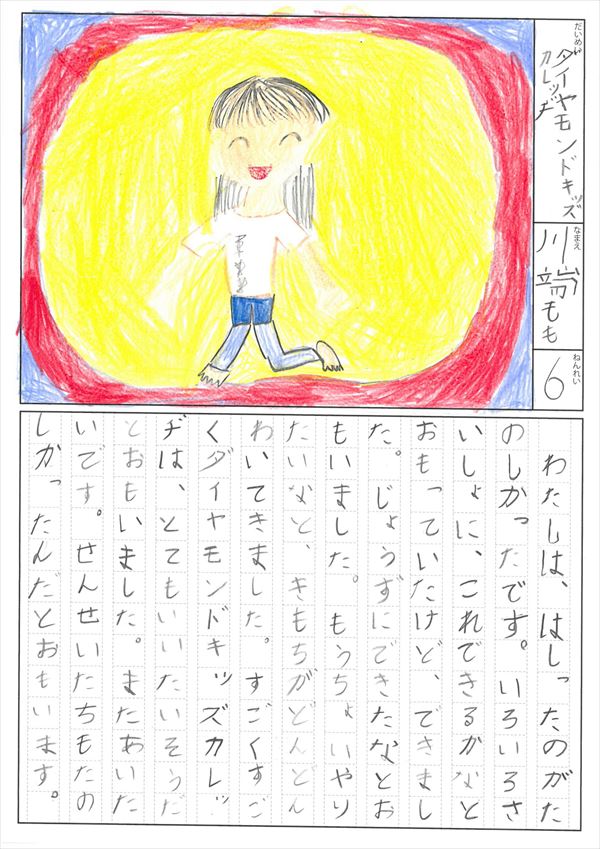 だいめい
ダイヤモンドキッズ
カレッヂ
なまえ
川端もも
ねんれい
6
わたしは、はしったのがた
のしかったです。いろいろさ
いしょに、これできるかなと
おもっていたけど、できまし
た。じょうずにできたなとお
もいました。もうちょいやり
たいなと、きもちがどんどん
わいてきました。すごくすご
くダイヤモンドキッズカレッ
ヂは、とてもいいたいそうだ
とおもいました。またあいた
いです。せんせいたちもたの
しかったんだとおもいます。